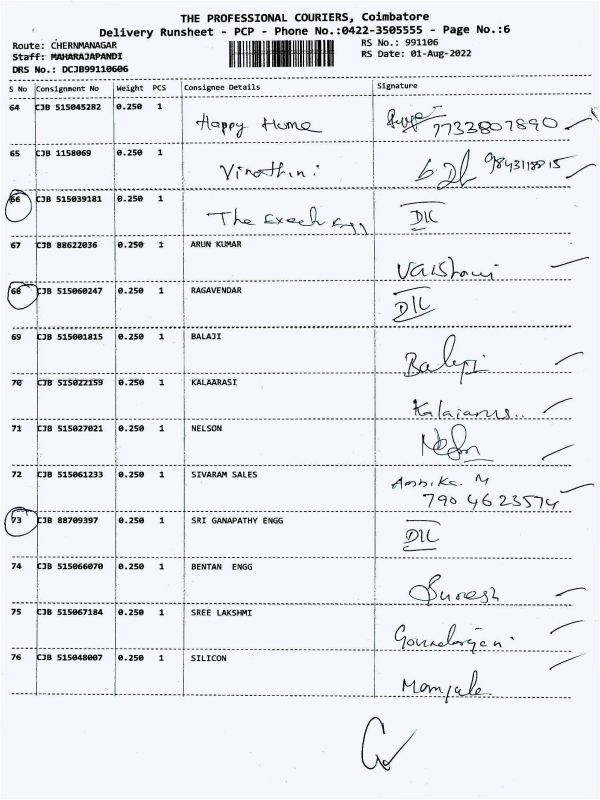 THE PROFESSIONAL COURIERS, Coimbatore
Delivery Runsheet - PCP - Phone No.:0422-3505555 - Page No.:6
Route: CHERNMANAGAR RS No.: 991106
Staff: MAHARAJAPANDI RS Date: 01-Aug-2022
DRS No.: DCJB99110606
S No Consignment No Weight PCS Consignee Details Signature
64 CJB 515045282 0.250 1
Happy Home 7733807890
65 CJB 1158069 0.250 1
Vinothini 9843118815
66 CJB 515039181 0.250 1
The DIL
67 CJB 88622036 0.250 1 ARUN KUMAR
Vaishnavi
68 CJB 515060247 0.250 1 RAGAVENDAR
DIL
69 CJB 515001815 0.250 1 BALAJI
Balaji
70 CJB 515022159 0.250 1 KALAARASI
Kalaiarus..
71 CJB 515027021 0.250 1 NELSON
Nelson
72 CJB 515061233 0.250 1 SIVARAM SALES
Ambika. M
790 4623574
73 CJB 88709397 0.250 1 SRI GANAPATHY ENGG
DIL
74 CJB 515066070 0.250 1 BENTAN ENGG
Suresh
75 CJB 515067184 0.250 1 SREE LAKSHMI
76 CJB 515048007 0.250 1 SILICON
Manjula